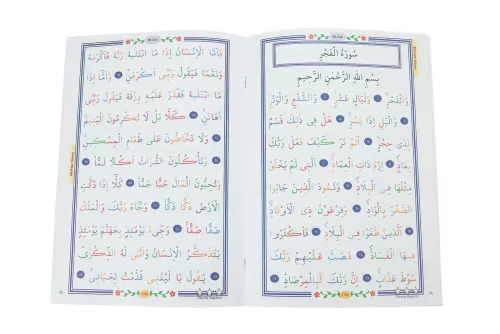 سُورَةُ الْفَجْرِ
بِسْمِ اللهِ الرَّحْمٰنِ الرَّحِيمِ
وَالْفَجْرِ وَلَيَالٍ عَشْرٍ وَالشَّفْعِ وَالْوَتْرِ
وَالَّيْلِ اِذَا يَسْرِ هَلْ فِى ذٰلِكَ قَسَمٌ
لِذِى حِجْرٍ اَلَمْ تَرَ كَيْفَ فَعَلَ رَبُّكَ
بِعَادٍ اِرَمَ ذَاتِ الْعِمَادِ اَلَّتِى لَمْ يُخْلَقْ
مِثْلُهَا فِى الْبِلَادِ وَثَمُودَ الَّذِينَ جَابُوا
الصَّخْرَ بِالْوَادِ وَفِرْعَوْنَ ذِى الْاَوْتَادِ
اَلَّذِينَ طَغَوْا فِى الْبِلَادِ فَاَكْثَرُوا
فِيهَا الْفَسَادَ فَصَبَّ عَلَيْهِمْ رَبُّكَ
سَوْطَ عَذَابٍ اِنَّ رَبَّكَ لَبِالْمِرْصَادِ
فَاَمَّا الْاِنْسَانُ اِذَا مَا ابْتَلٰيهُ رَبُّهُ فَاَكْرَمَهُ
وَنَعَّمَهُ فَيَقُولُ رَبِّى اَكْرَمَنِ وَاَمَّا اِذَا
مَا ابْتَلٰيهُ فَقَدَرَ عَلَيْهِ رِزْقَهُ فَيَقُولُ رَبِّى
اَهَانَنِ كَلَّا بَلْ لَا تُكْرِمُونَ الْيَتِيمَ
وَلَا تَحَاضُّونَ عَلٰى طَعَامِ الْمِسْكِينِ
وَتَاْكُلُونَ التُّرَاثَ اَكْلًا لَمًّا
وَتُحِبُّونَ الْمَالَ حُبًّا جَمًّا كَلَّا اِذَا دُكَّتِ
الْاَرْضُ دَكًّا دَكًّا وَجَاءَ رَبُّكَ وَالْمَلَكُ
صَفًّا صَفًّا وَجِىءَ يَوْمَئِذٍ بِجَهَنَّمَ يَوْمَئِذٍ
يَتَذَكَّرُ الْاِنْسَانُ وَاَنّٰى لَهُ الذِّكْرٰى
يَقُولُ يَا لَيْتَنِى قَدَّمْتُ لِحَيَاتِى